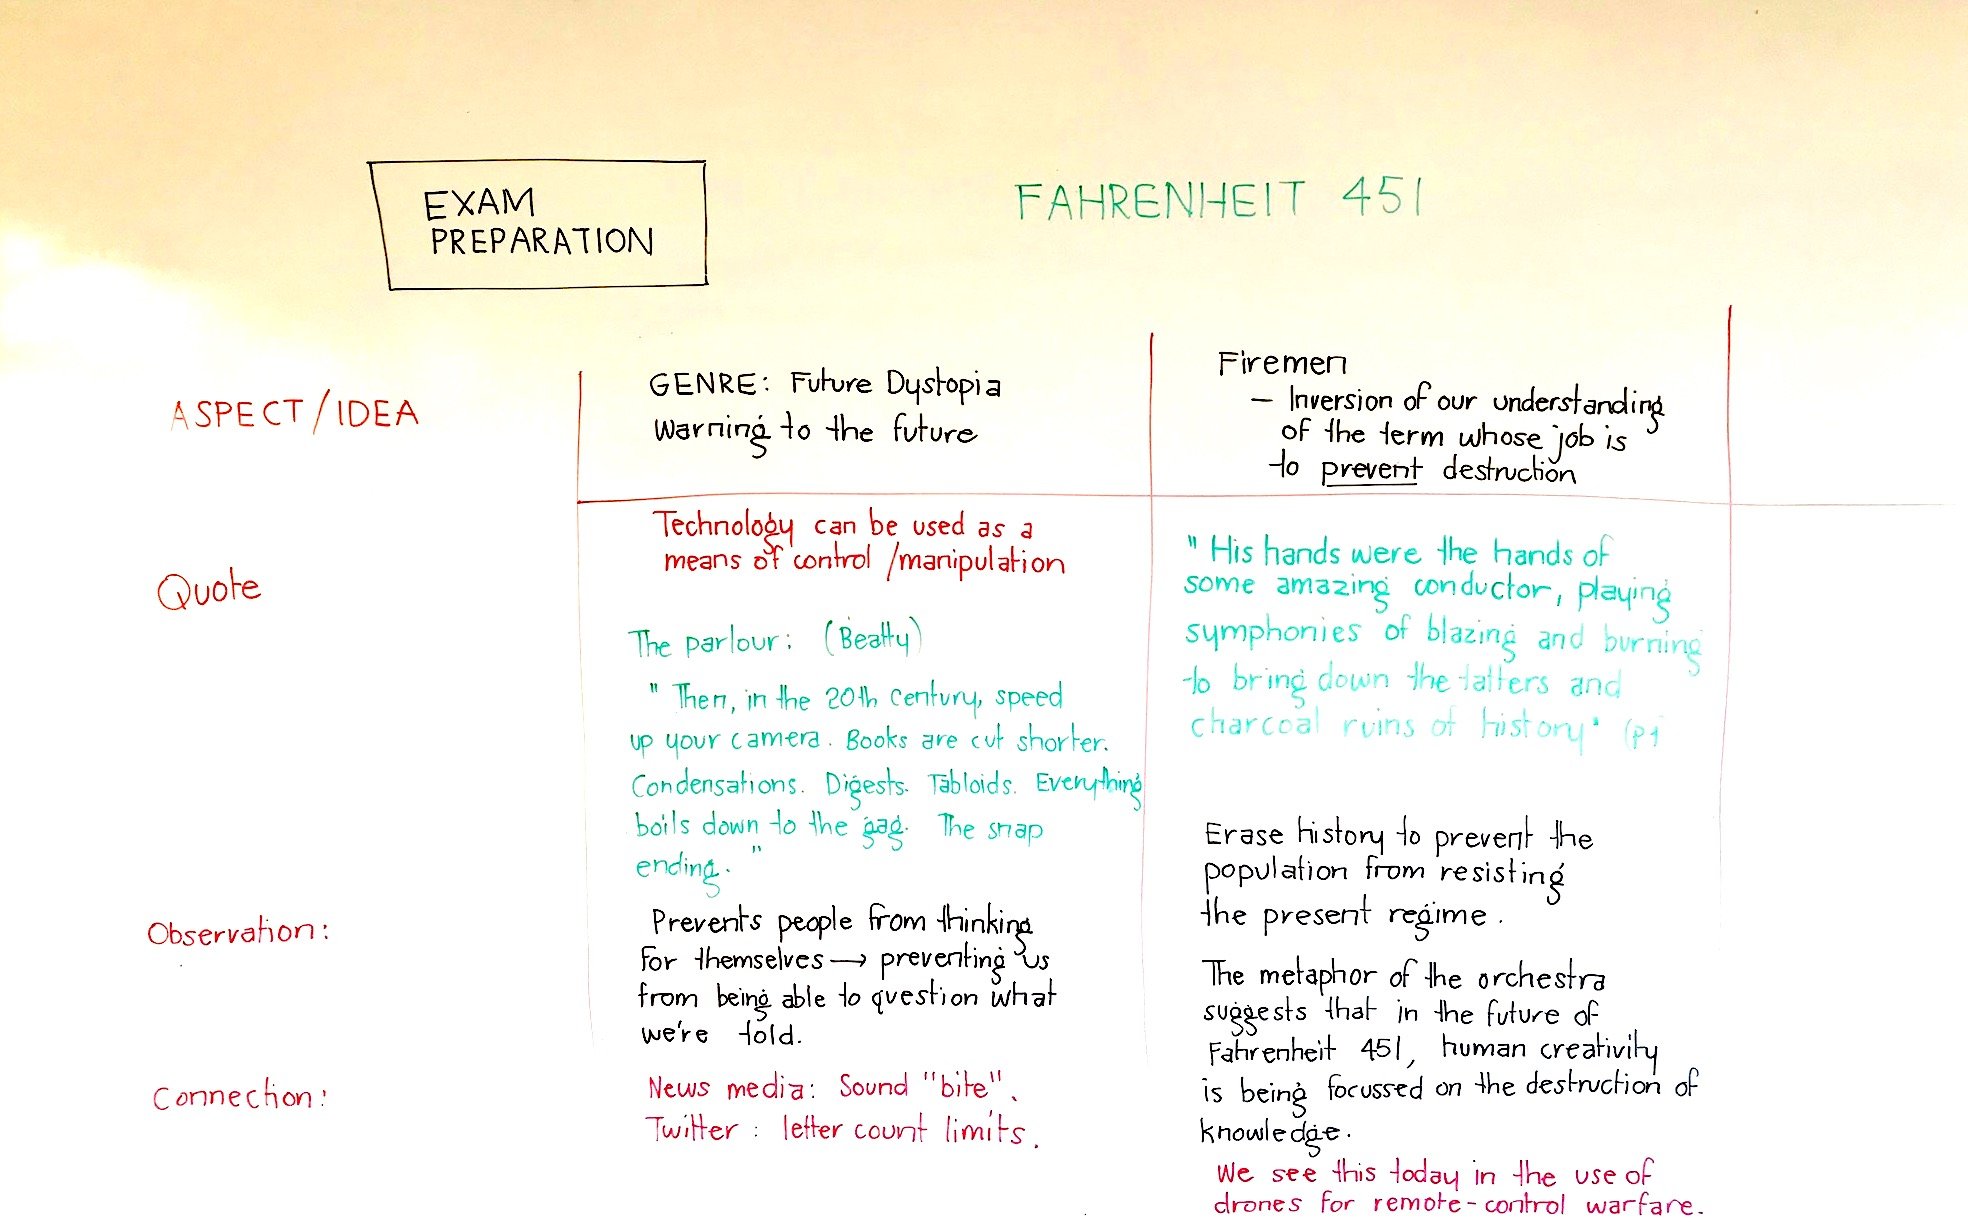 EXAM
PREPARATION
FAHRENHEIT 451
ASPECT/IDEA
GENRE: Future Dystopia
Warning to the future
Firemen
— Inversion of our understanding
of the term whose job is
to prevent destruction
Quote
Technology can be used as a
means of control /manipulation
The parlour: (Beatty)
" Then, in the 20th Century, speed
up your camera. Books are cut shorter.
Condensations. Digests. Tabloids. Everything
boils down to the gag. The snap
ending."
"His hands were the hands of
some amazing conductor, playing
symphonies of blazing and burning
to bring down the tatters and
charcoal ruins of history" (p1
Observation:
Prevents people from thinking
for themselves → preventing us
from being able to question what
we're told.
Erase history to prevent the
population from resisting
the present regime.
The metaphor of the orchestra
suggests that in the future of
Fahrenheit 451, human creativity
is being focussed on the destruction of
knowledge.
Connection:
News media: Sound "bite".
Twitter: letter count limits.
We see this today in the use of
drones for remote-control warfare.